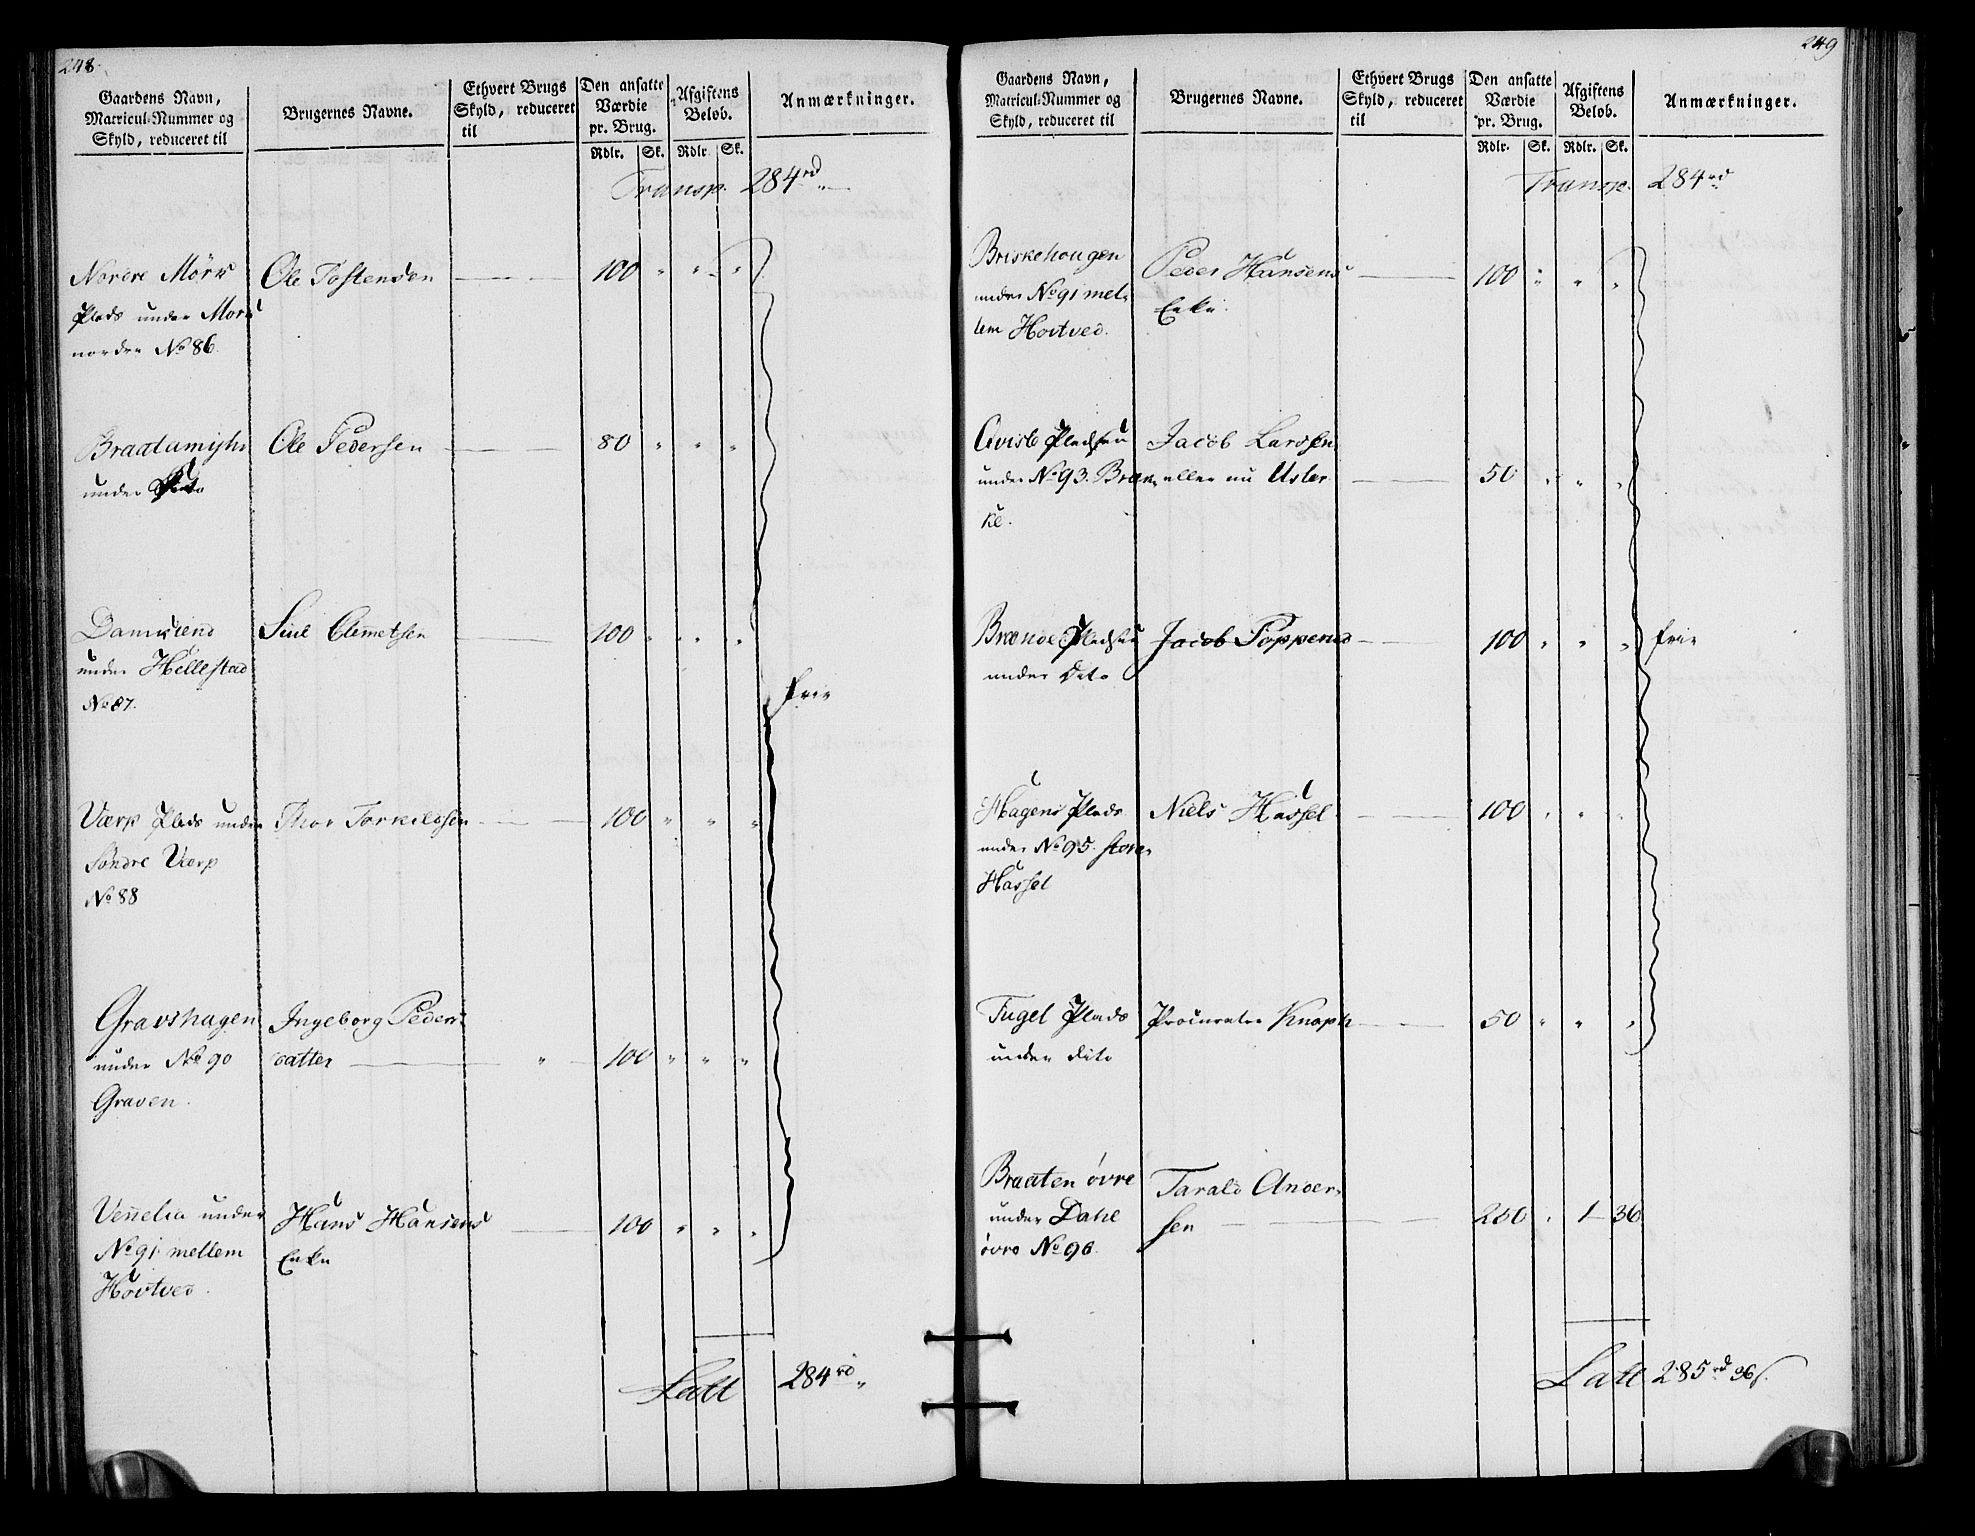 248.
Gaardens Navn,
Matricul-Nummer og
Skyld, reduceret til
Brugernes Navne.
Ethvert Brugs
Skyld, reduceret
til
Den ansatte
Værdie
pr. Brug.
Afgiftens
Beløb.
Anmærkninger.
Rdlr. Sk. Rdlr. Sk.
Transp. 284 rd "
Nordre Mörk Ole Tostensen 100 " " "
Plads under Mork
nordre No 86.
Ole Pedersen 80 " " "
under
Clemetsen 100 " " "
under Hellestad
No 87.
frie
Værp Plads under Thor Torkildsen 100 " " "
Söndre Værp
No 88
Gravshagen Ingeborg Peders
under No 90 datter 100 " " "
Graven.
Vennelia under Hans Hansens 100 " " "
No 91 mellem Enke
Hovtved.
Latt 284 rd "
249
Gaardens Navn,
Matricul-Nummer og
Skyld, reduceret til
Brugernes Navne.
Ethvert Brugs
Skyld, reduceret
til
Den ansatte
Værdie
pr. Brug.
Afgiftens
Beløb.
Anmærkninger.
Rdlr. Sk. Rdlr. Sk.
Transp. 284 rd
Briskehougen Peder Hansens 100 " " "
under No 91 mel- Enke.
lem Hovtved.
Pladsen Jacob Larssen
under No 93. Bræn- eller nu Usler 50 " " "
ke.
Brænde Pladsen Jacob Toppenes 100 " " " frie
under Dito
Hagens Plads Niels Hassel 100 " " "
under No 95. store
Hassel
Fugel Plads Procurator Knoph 50 " " "
under dito
Braaten övre Tarald Ander-
under Dahl sen 200 " 1 - 36
övre No 96.
Latt 285 rd 36 s.